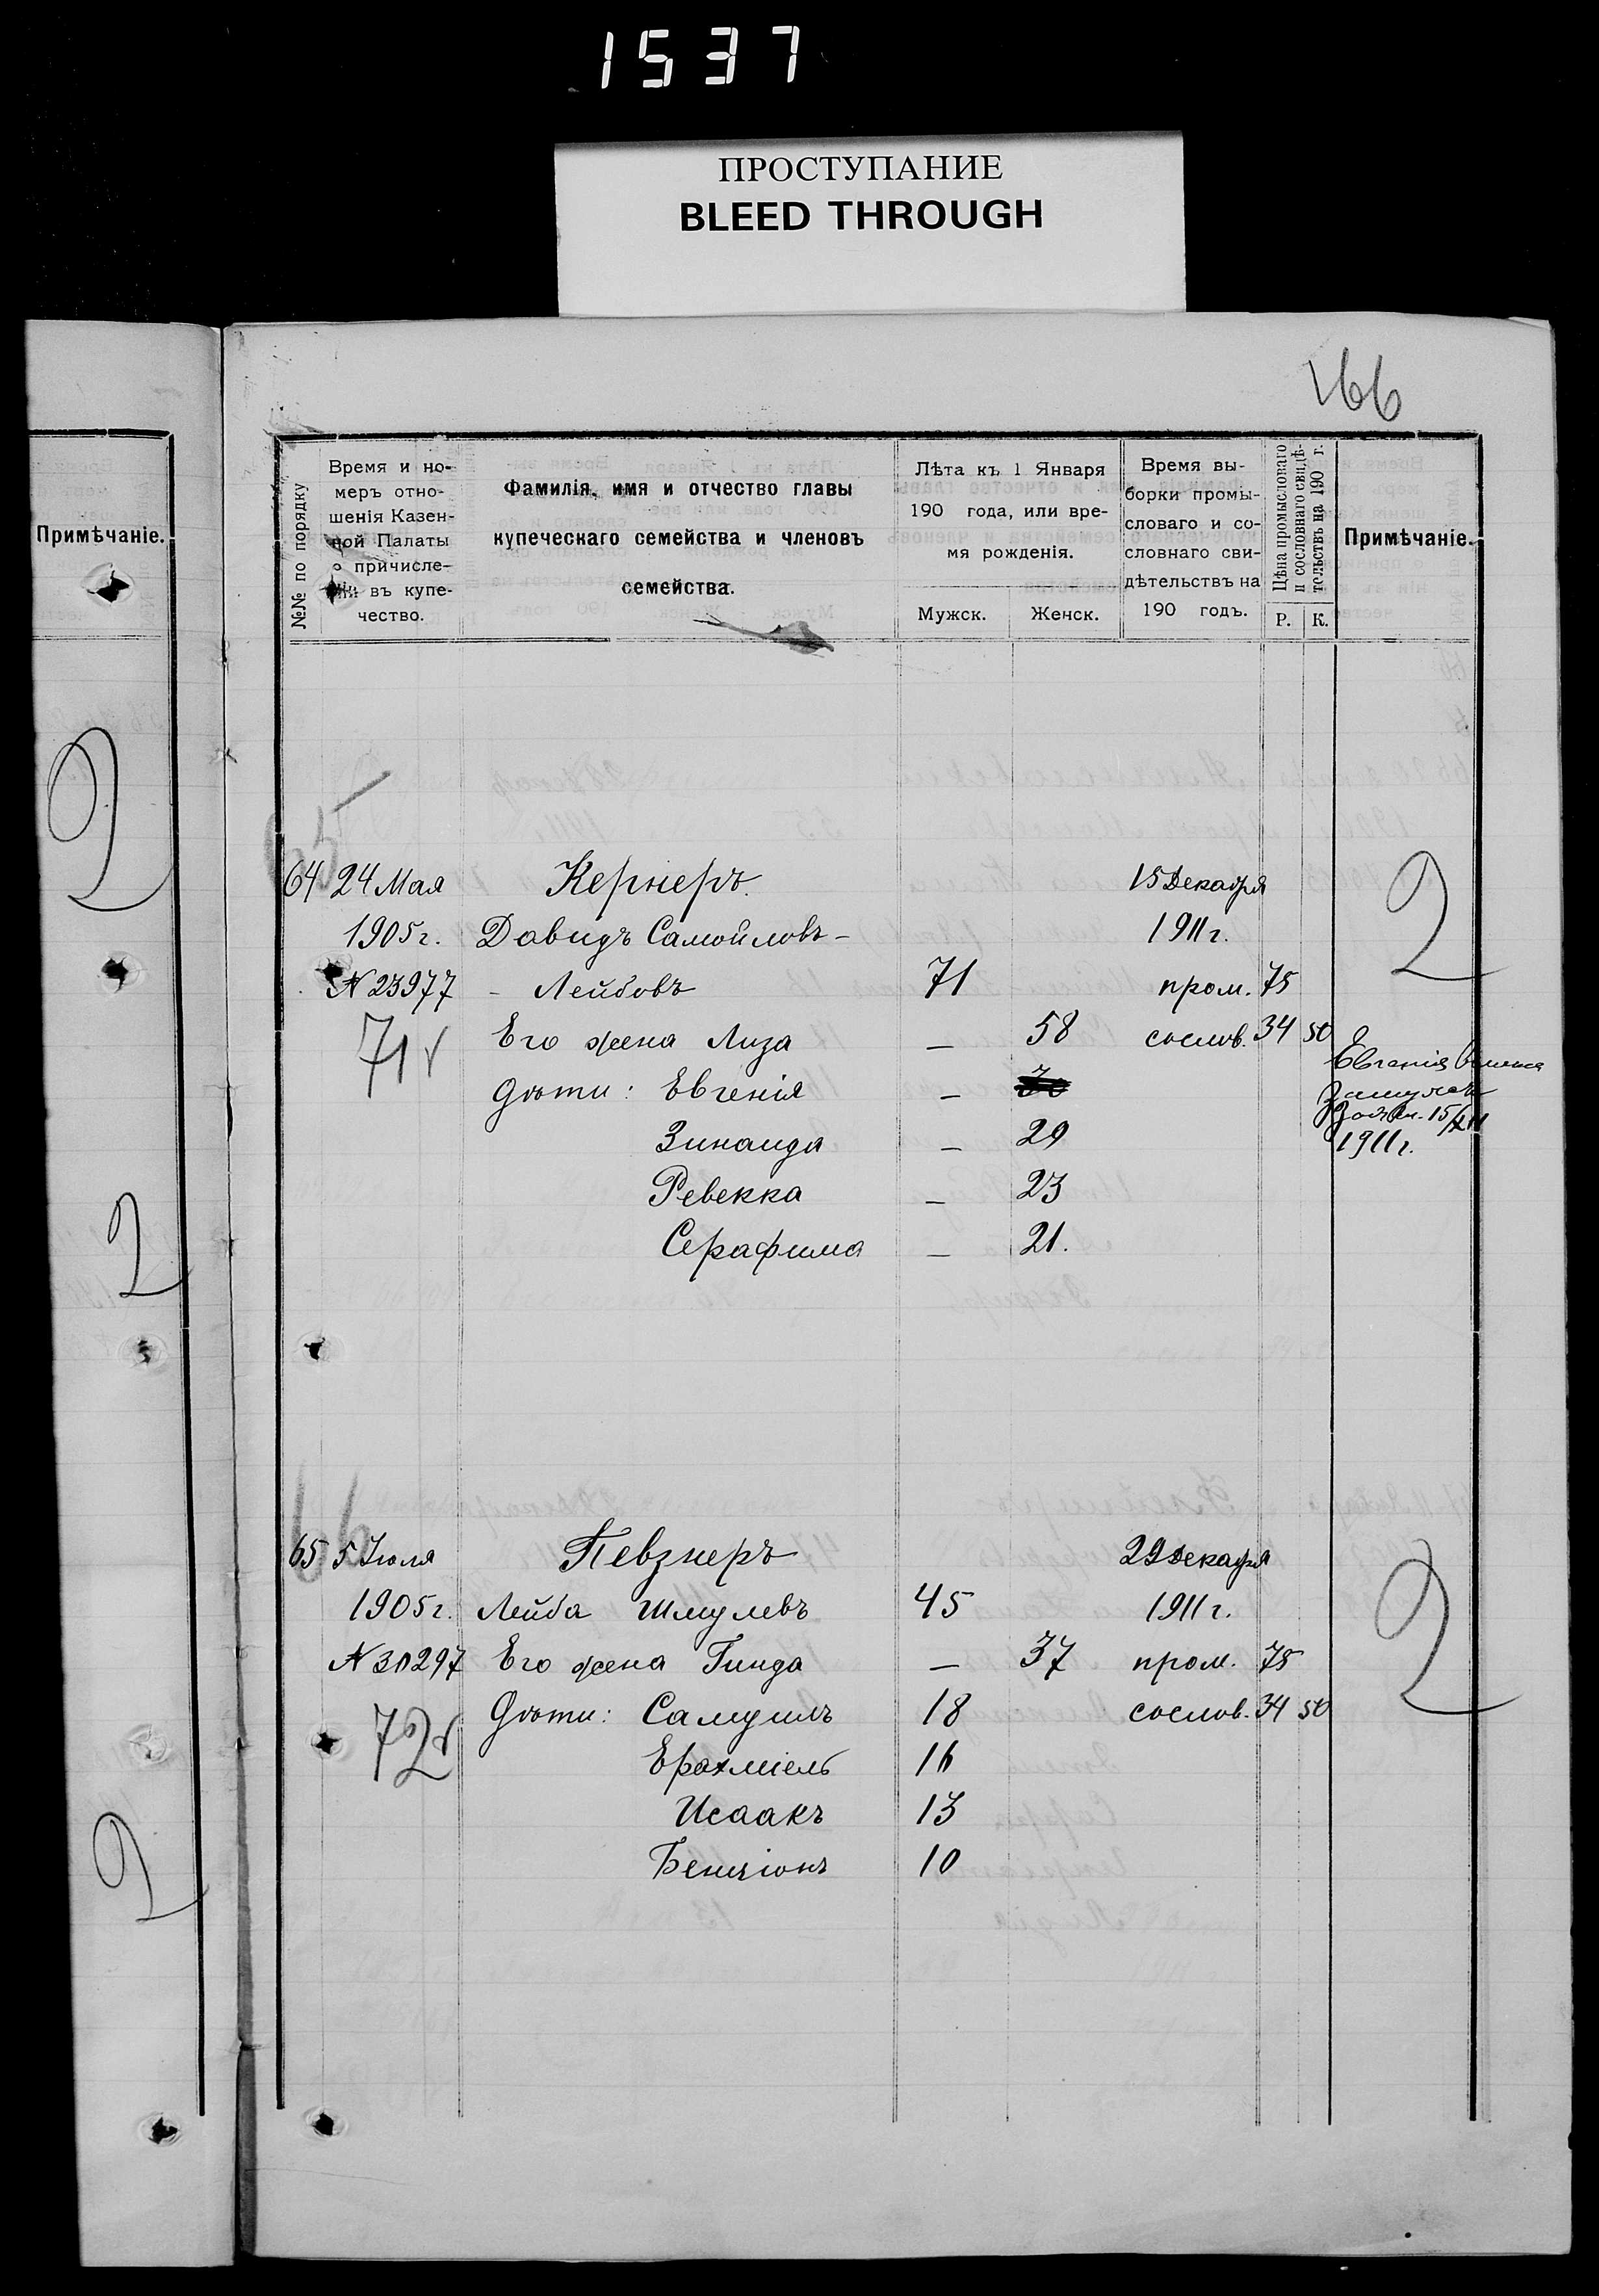 1537
ПРОСТУПАНИЕ
BLEED THROUGH
166
Примѣчаніе.
№№ по порядку
Время и но-
меръ отно-
шенія Казен-
ной Палаты
о причисле-
ніи въ купе-
чество.
Фамилія, имя и отчество главы
купеческаго семейства и членовъ
семейства.
Лѣта къ 1 Января
190 года, или вре-
мя рожденія.
Мужск. Женск.
Время вы-
борки промы-
словаго и со-
словнаго сви-
дѣтельствъ на
190 годъ.
Цѣна промысловаго
и сословнаго свидѣ-
тельствъ на 190 г.
Р. К.
Примѣчаніе.
65
64 24 Мая Кернеръ. 15 Декабря 2
1905 г. Давидъ Самойловъ- 1911 г.
№ 23977 - Лейбовъ 71 пром. 75
71 Его жена Лиза — 58 сослов. 34 50
дѣти: Евгенія — 30 Евгенія вышла
замужъ
Зинаида — 29 15/XII
1911 г.
Ревекка — 23
Серафима — 21.
66
65 5 Іюля Певзнеръ 29 Декабря 2
1905 г. Лейба Шмулевъ 45 1911 г.
№ 30297 Его жена Гинда — 37 пром. 75
72 Дѣти: Самуилъ 18 сослов. 34 50
Ерахміель 16
Исаакъ 13
Бенціонъ 10
2
2
2